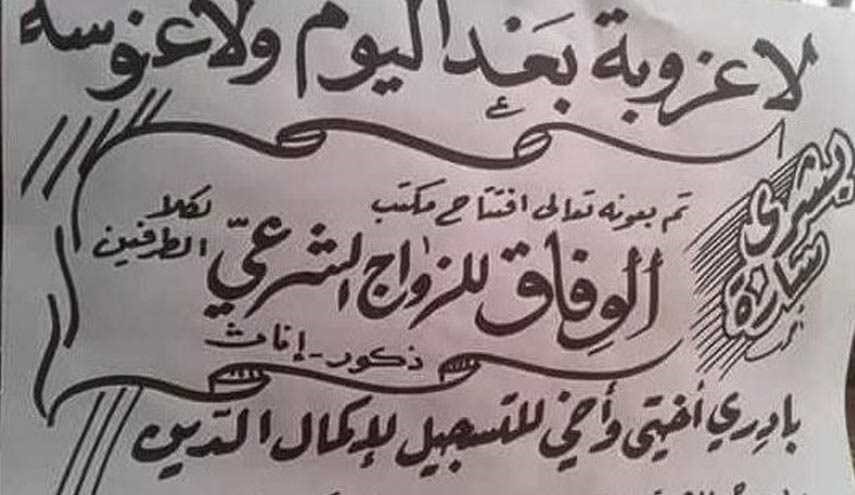 لا عزوبة بَعْد اليوم ولا عنوسه
بشرى سارة
تم بعونه تعالى افتتاح مكتب
لكلا الطرفين
الوِفاق للزواج الشرعيّ
ذكور - إناث
بادِري أختي وأخي للتسجيل للإكمال الدّين